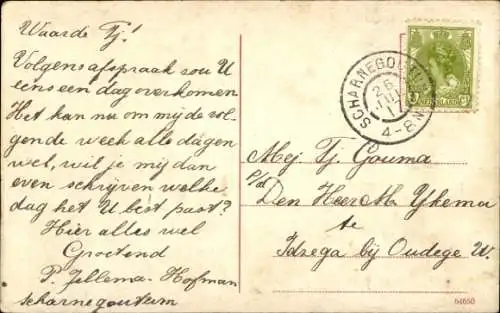 Waarde Tj!
Volgens afspraak zou U
eens een dag overkomen
Het kan nu om mij de vol-
gende week alle dagen
wel, wil je mij dan
even schrijven welke
dag het U best past?
Hier alles wel
Groetend
T. Jellema-Hofman
Scharnegoutum
SCHARNEGOUTUM
26 JUL
4-8N
NEDERLAND
Mej Tj. Gouma
p/a
Den Heer M Ykema
te
Idzega bij Oudege W.
64660